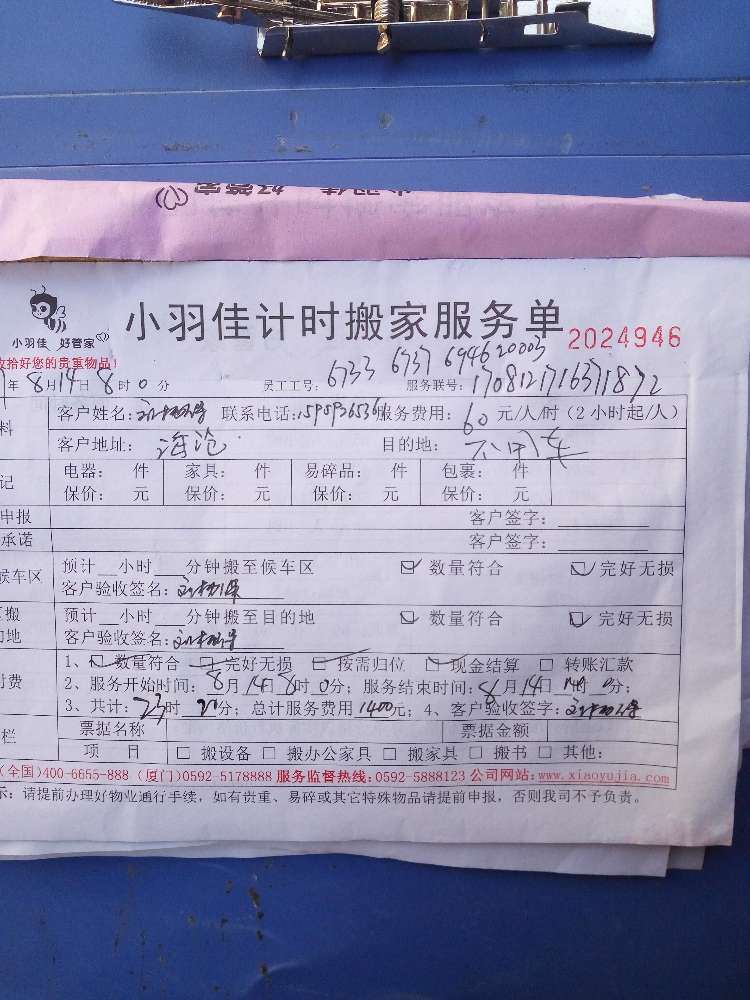 小羽佳 好管家
小羽佳 好管家
小羽佳计时搬家服务单 2024946
收拾好您的贵重物品!
年8月14日8时0分 员工工号: 6733 6737 6946 20003 服务联号: 1708121716371872
料 客户姓名: 联系电话: 服务费用: 60 元/人/时 (2小时起/人)
客户地址: 海沧 目的地: 不用车
记 电器: 件 家具: 件 易碎品: 件 包裹: 件
保价: 元 保价: 元 保价: 元 保价: 元
申报 客户签字:
承诺 客户签字:
候车区 预计 小时 分钟搬至候车区 数量符合 完好无损
客户验收签名:
搬 预计 小时 分钟搬至目的地 数量符合 完好无损
的地 客户验收签名:
1、 数量符合 完好无损 按需归位 现金结算 转账汇款
付费 2、服务开始时间: 8月14日8时0分; 服务结束时间: 8月14日 时 分;
3、共计: 23时 分; 总计服务费用1400元; 4、客户验收签字:
栏 票据名称 票据金额
项 目 搬设备 搬办公家具 搬家具 搬书 其他:
(全国)400-6655-888 (厦门)0592-5178888 服务监督热线:0592-5888123 公司网站:www.xiaoyujia.com
示: 请提前办理好物业通行手续, 如有贵重、易碎或其它特殊物品请提前申报, 否则我司不予负责。